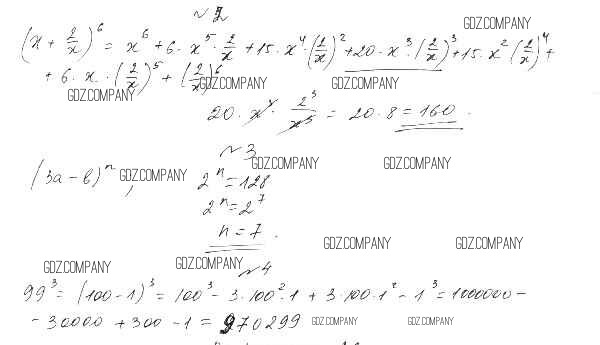 ~ 2
GDZ.COMPANY
(x + 2/x)^6 = x^6 + 6·x^5·2/x + 15·x^4·(2/x)^2 + 20·x^3·(2/x)^3 + 15·x^2(2/x)^4 +
+ 6·x·(2/x)^5 + (2/x)^6
GDZ.COMPANY GDZ.COMPANY GDZ.COMPANY
20·x^3·2^3/x^3 = 20·8 = 160.
~ 3
GDZ.COMPANY GDZ.COMPANY
(3a - b)^n, GDZ.COMPANY 2^n = 128
2^n = 2^7
n = 7.
GDZ.COMPANY GDZ.COMPANY
GDZ.COMPANY GDZ.COMPANY
~ 4
99^3 = (100 - 1)^3 = 100^3 - 3·100^2·1 + 3·100·1^2 - 1^3 = 1000000 -
- 30000 + 300 - 1 = 970299
GDZ.COMPANY GDZ.COMPANY